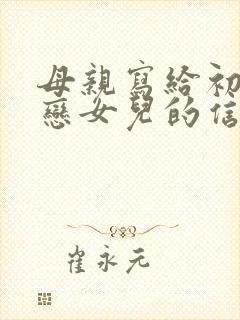 母親寫給初
戀女兒的信
崔永元